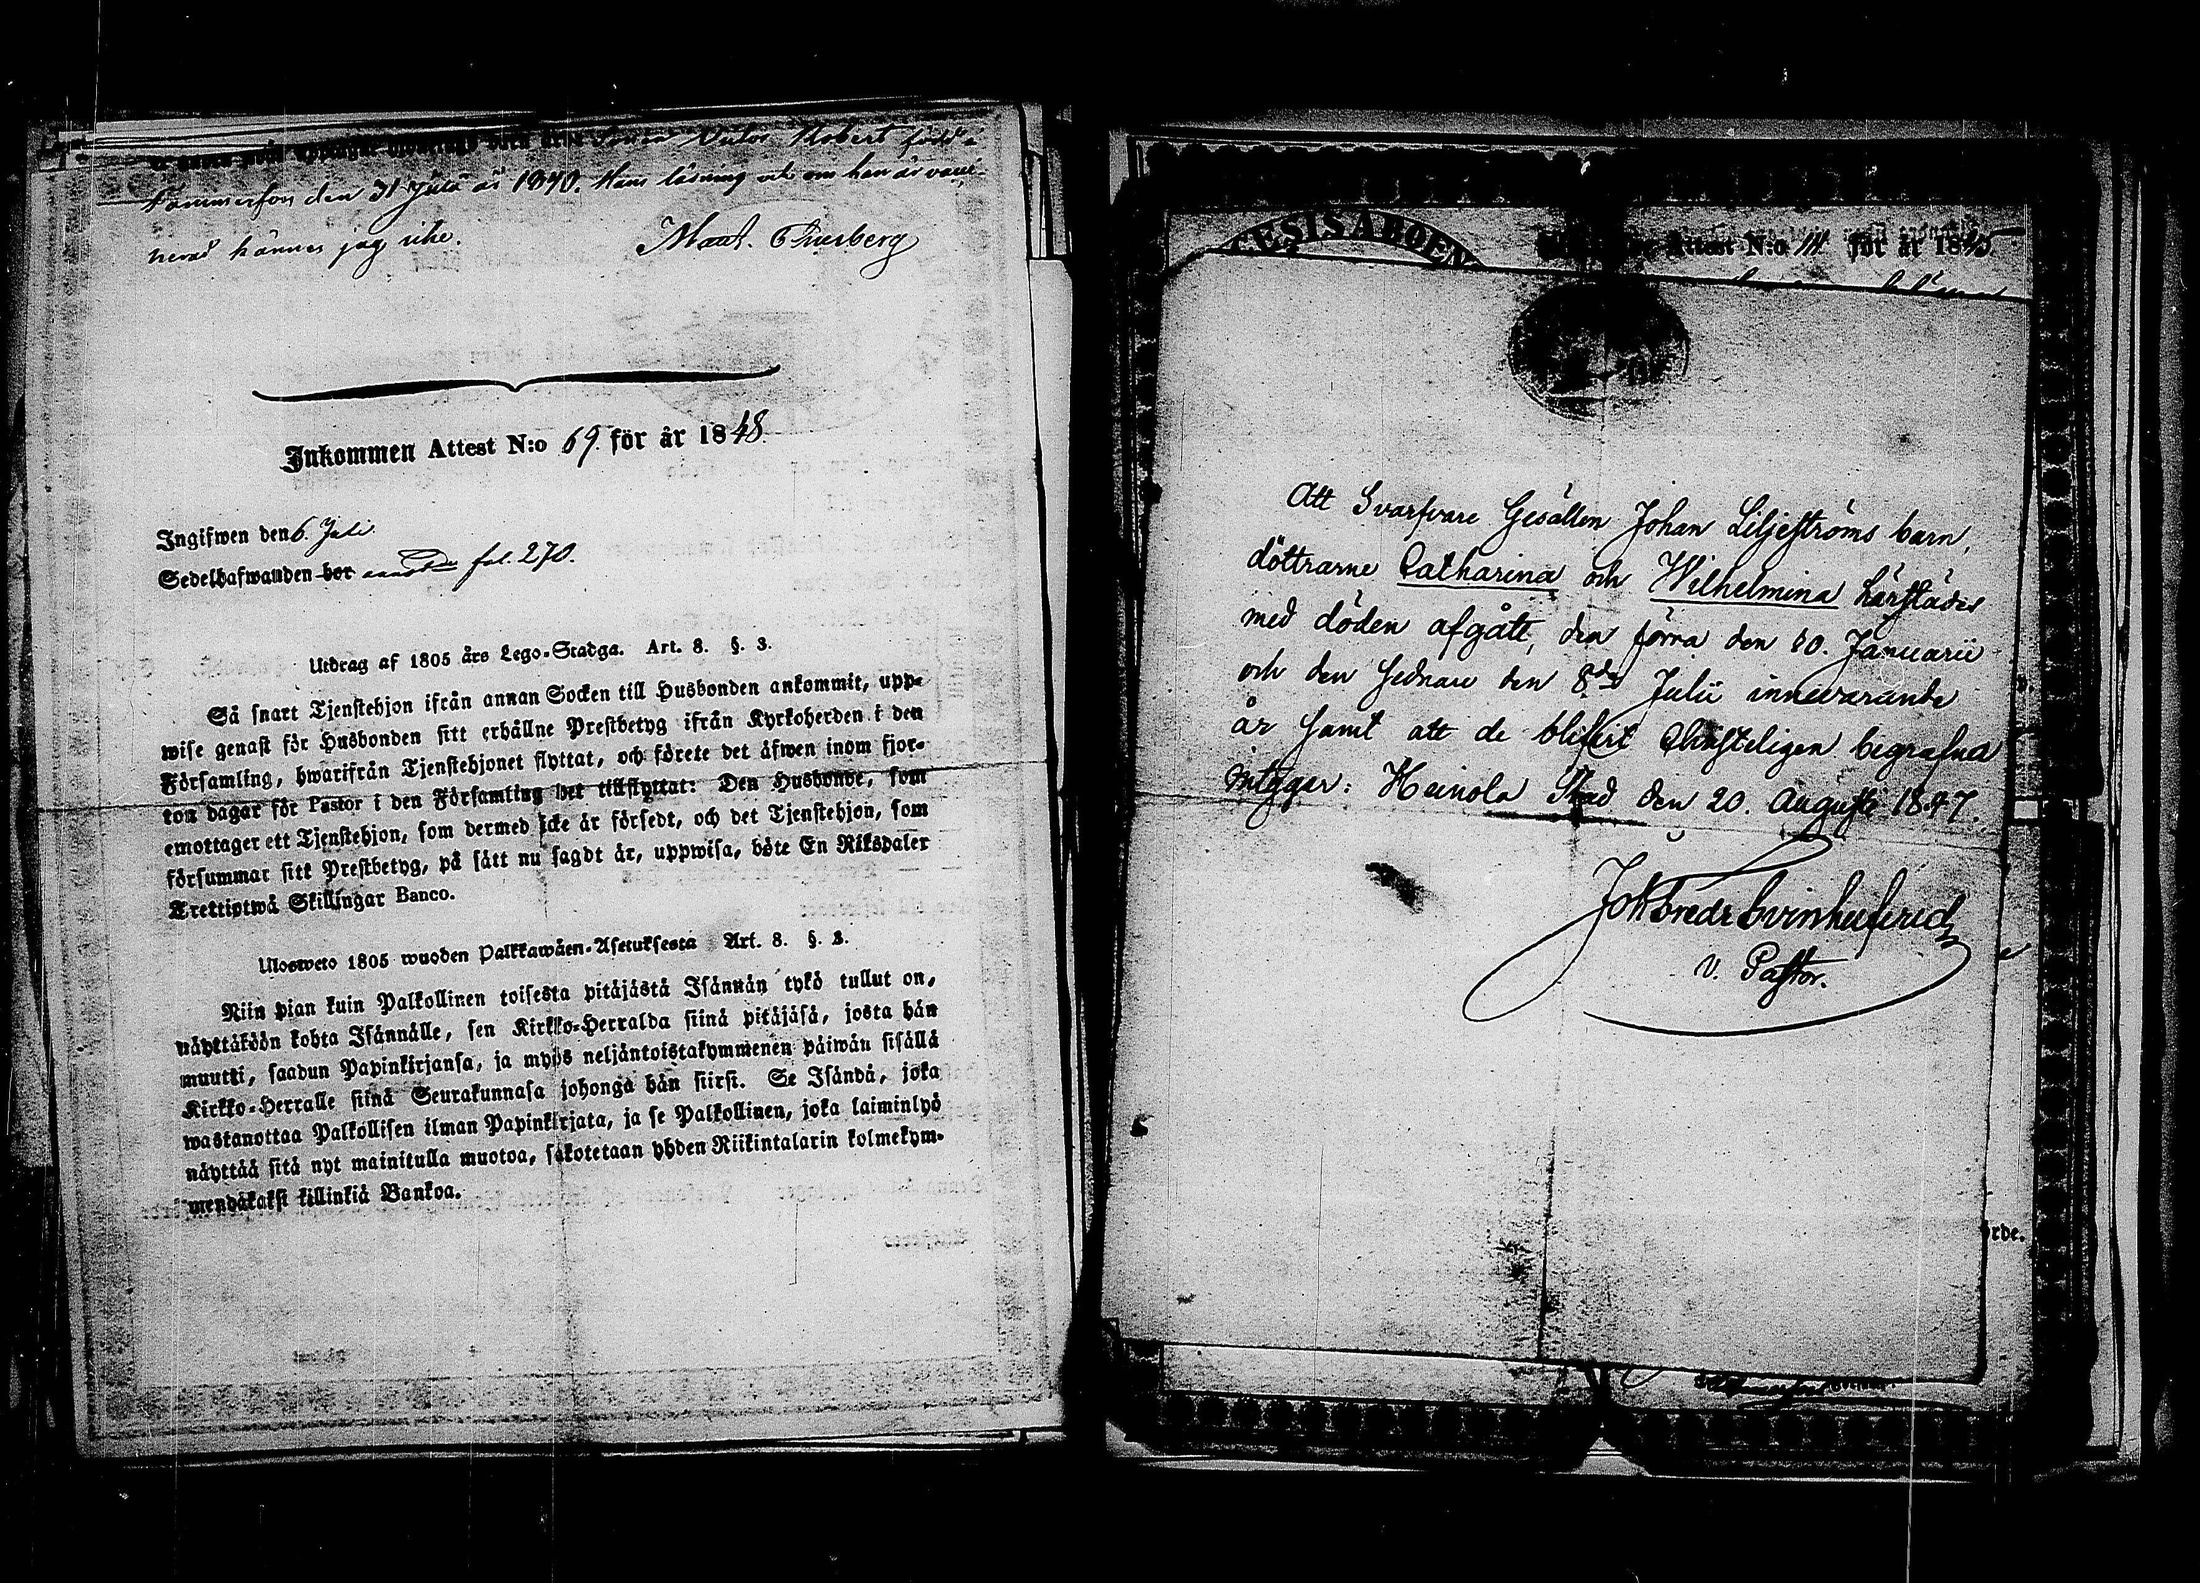 Sonen Victor Robert född i
Tammerfors den 31 Julii år 1840. Hans läsning och om han är vacci-
nerad kännes jag icke.
Inkommen Attest N:o 69. för år 1848.
Ingifwen den 6. Juli.
Sedelhafwanden bor fol. 270.
Utdrag af 1805 års Lego-Stadga. Art. 8. §. 3.
Så snart Tjenstehjon ifrån annan Socken till Husbonden ankommit, upp-
wise genast för Husbonden sitt erhållne Prestbetyg ifrån Kyrkoherden i den
Församling, hwarifrån Tjenstehjonet flyttat, och förete det äfwen inom fjor-
ton dagar för Pastor i den Församling det tillflyttat: Den Husbonde, som
emottager ett Tjenstehjon, som dermed icke är försedt, och det Tjenstehjon, som
försummar sitt Prestbetyg, på sätt nu sagdt är, uppwisa, böte En Riksdaler
Trettiotwå Skillingar Banco.
Ulosweto 1805 wuoden Palkkawäen-Asetuksesta Art. 8. §. 3.
Niin pian kuin Palkollinen toisesta pitäjästä Isännän tykö tullut on,
näyttäköön kohta Isännälle, sen Kirkko-Herralda siinä pitäjäsä, josta hän
muutti, saadun Papinkirjansa, ja myös neljäntoistakymmenen päiwän sisällä
Kirkko-Herralle siinä Seurakunnasa johonga hän siirsi. Se Isändä, joka
wastanottaa Palkollisen ilman Papinkirjata, ja se Palkollinen, joka laiminlyö
näyttää sitä nyt mainitulla muotoa, sakotetaan yhden Riikintalarin kolmekym-
mendäkaksi killinkiä Bankoa.
ESIS ABOEN
Attest N:o 111 för år 1845.
Att Svarfvare Gesällen Johan Liljeströms barn,
döttrarne Catharina och Wilhelmina härstädes
med döden afgått, den förra den 20. Januarii
och den sednare den 8de Julii innevarande
år samt att de blifvit Christeligen begrafna
intygar: Heinola Stad den 20. Augusti 1847.
Joh Fredr Svinhufvud
V. Pastor.
örde.